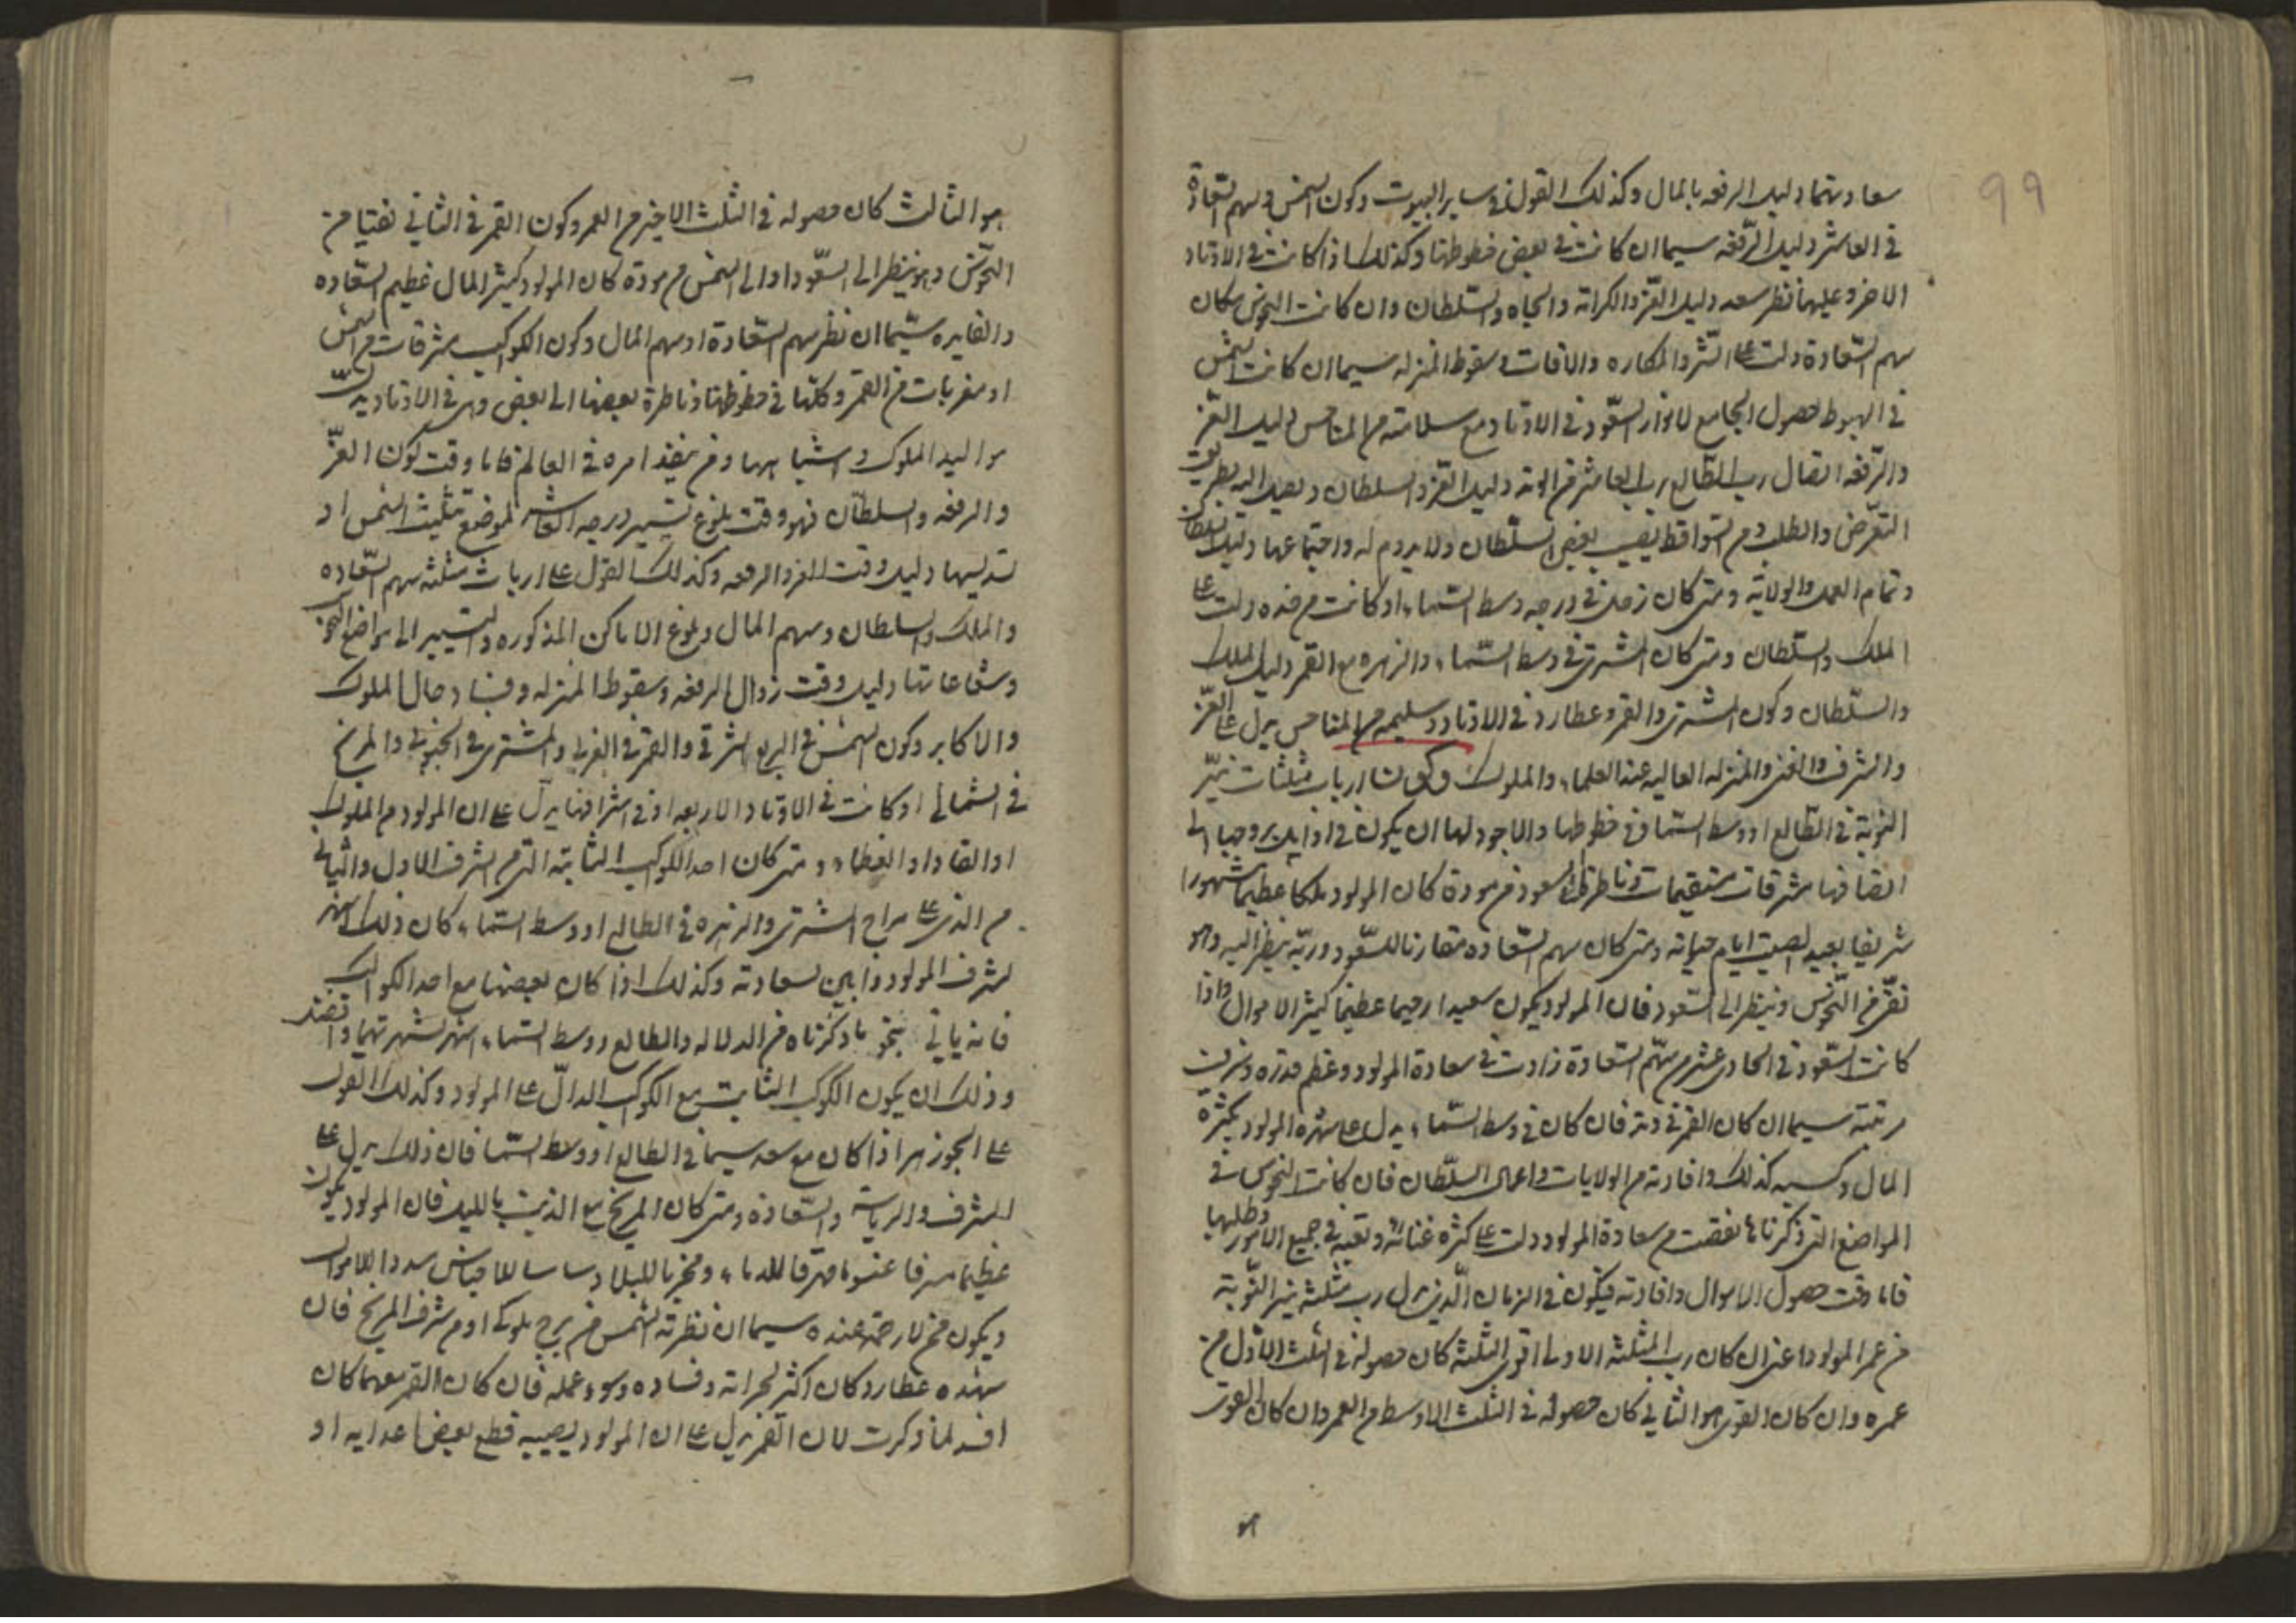 99
سعادتهما دليل الرفعه بالمال وكذلك القول في ساير البيوت وكون الشمس وسهم السّعادة
في العاشر دليل الرّفعه سيما ان كانت في بعض حظوظها وكذلك اذا كانت في الاوتاد
الاخر وعليهما نظر سعد دليل العزّ والكرامة والجاه والسّلطان وان كانت النحوس مكان
سهم السّعادة دلت على الشّر والمكاره والافات وسقوط المنزله سيما ان كانت الشمس
في الهبوط حصول الجامع لانوار السّعود في الاوتاد مع سلامته من المناحس دليل العزّ
والرّفعه اتصال رب الطّالع برب العاشر من دليل العز والسلطان ويصل اليه بطريق
التعرّض والطلب ومن السّواقط يصيب بعض السّلطان ولا يدوم له واجتماعهما دليل السلطان
وتمام العمل والولاية ومتى كان زحل في درجه وسط السّماء او كانت من حدّه دلت على
الملك والسّلطان ومتى كان المشترى في وسط السّماء والزهره مع القمر دليل الملك
والسّلطان وكون المشترى والقمر وعطارد في الاوتاد وسليمه من المناحس يدل على العزّ
والشرف والغنى والمنزله العاليه عند العلماء والملوك وكون ارباب مثلثات نيّر
النوبة في الطّالع او وسط السّما وفي حظوظها والاجود لها ان يكون في اوايل بروجها الى
انصافها مشرقات مستقيمات وناظرة السعود من مودة كان المولود ملكا عظيما مشهورا
شريفا بعيد الصيت ايام حياته ومتى كان سهم السّعاده مقارنا للسّعود وربّه ينظر اليه وهو
نقيّ من النّحوس وينظر الى السّعود فان المولود يكون سعيدا رحيما عظيما كثير الاموال واذا
كانت السّعود في الحادى عشر من سهم السّعادة زادت في سعادة المولود وعظم قدره وشرفت
مرتبته سيما ان كان القمر في وتد فان كان في وسط السّماء يدل على شهره المولود بكثرة
المال وكسبه كذلك وافادته من الولايات واعمال السّلطان فان كانت النحوس في
المواضع التى ذكرناها نقصت من سعادة المولود ودلت على كثرة عنائه وتعبه في جميع الامور وطلبها
فاما وقت حصول الاموال وافادته فيكون في الزمان الّذى يدل رب مثلثة نيّر النّوبة
من عمر المولود اعنى ان كان رب المثلثة الاولى اقوى الثلثة كان حصوله في الثلث الاوّل من
عمره وان كان القوى هو الثاني كان حصوله في الثلث الاوسط من العمر وان كان القوى
هو
هو الثالث كان حصوله في الثلث الاخير من العمر وكون القمر في الثاني نقيّا من
النحوس وهو ينظر الى السّعود او الى الشمس من مودة كان المولود كثير المال عظيم السّعاده
والفايده سيّما ان نظر سهم السّعادة او سهم المال وكون الكواكب مشرقات من الشمس
او مغربات من القمر وكلها في حظوظها وناظرة بعضها الى بعض وهى في الاوتاد يدل
مواليد الملوك واشباهها ومن ينفذ امره في العالم فاما وقت كون العزّ
والرفعه والسلطان فهو وقت بلوغ تسيير درجه العاشر لموضع تثليث الشمس او
تسديسها دليل وقت العز والرفعه وكذلك القول على ارباب مثلثه سهم السّعاده
والملك والسلطان وسهم المال وبلوغ الاماكن المذكوره والتسيير الى مواضع النحوس
وشعاعاتها دليل وقت زوال الرفعه وسقوط المنزله وفساد حال الملوك
والاكابر وكون الشمس في الربع الشرقي والقمر في الغربي والمشترى في الجنوبي والمريخ
في الشمالي او كانت في الاوتاد الاربعه او في اشرافها يدل على ان المولود من الملوك
او القاداو العظماء ومتى كان احد الكواكب الثابتة التى من الشرف الاول والثاني
من الذى على مزاج المشترى والزهره في الطالع او وسط السّماء كان ذلك اشهر
لشرف المولود وابين لسعادته وكذلك اذا كان بعضها مع احد الكواكب
فانه ياتي بنحو ما ذكرناه من الدلاله والطالع ووسط السّماء اشهر لشهرتهما
وذلك ان يكون الكوكب الثابت مع الكوكب الدالّ على المولود وكذلك القول
على الجوزهر اذا كان مع سعد سيما في الطالع او وسط السّما فان ذلك يدل على
الشرف والرياسة والسّعادة ومتى كان المريخ مع الذنب بالليل فان المولود يكون
عظيما مهرقا للدماء ومخربا للبلاد للاموال
ويكون ممن لا رحمة عنده سيما ان نظرته الشمس من برج ملوكى او من شرف المريخ فان
شهده عطارد كان اكثر لجراته وفساده وسوء عمله فان كان القمر معهما كان
افسد لما ذكرت لان القمر يدل على ان المولود يصيبه قطع بعض اعدايه او